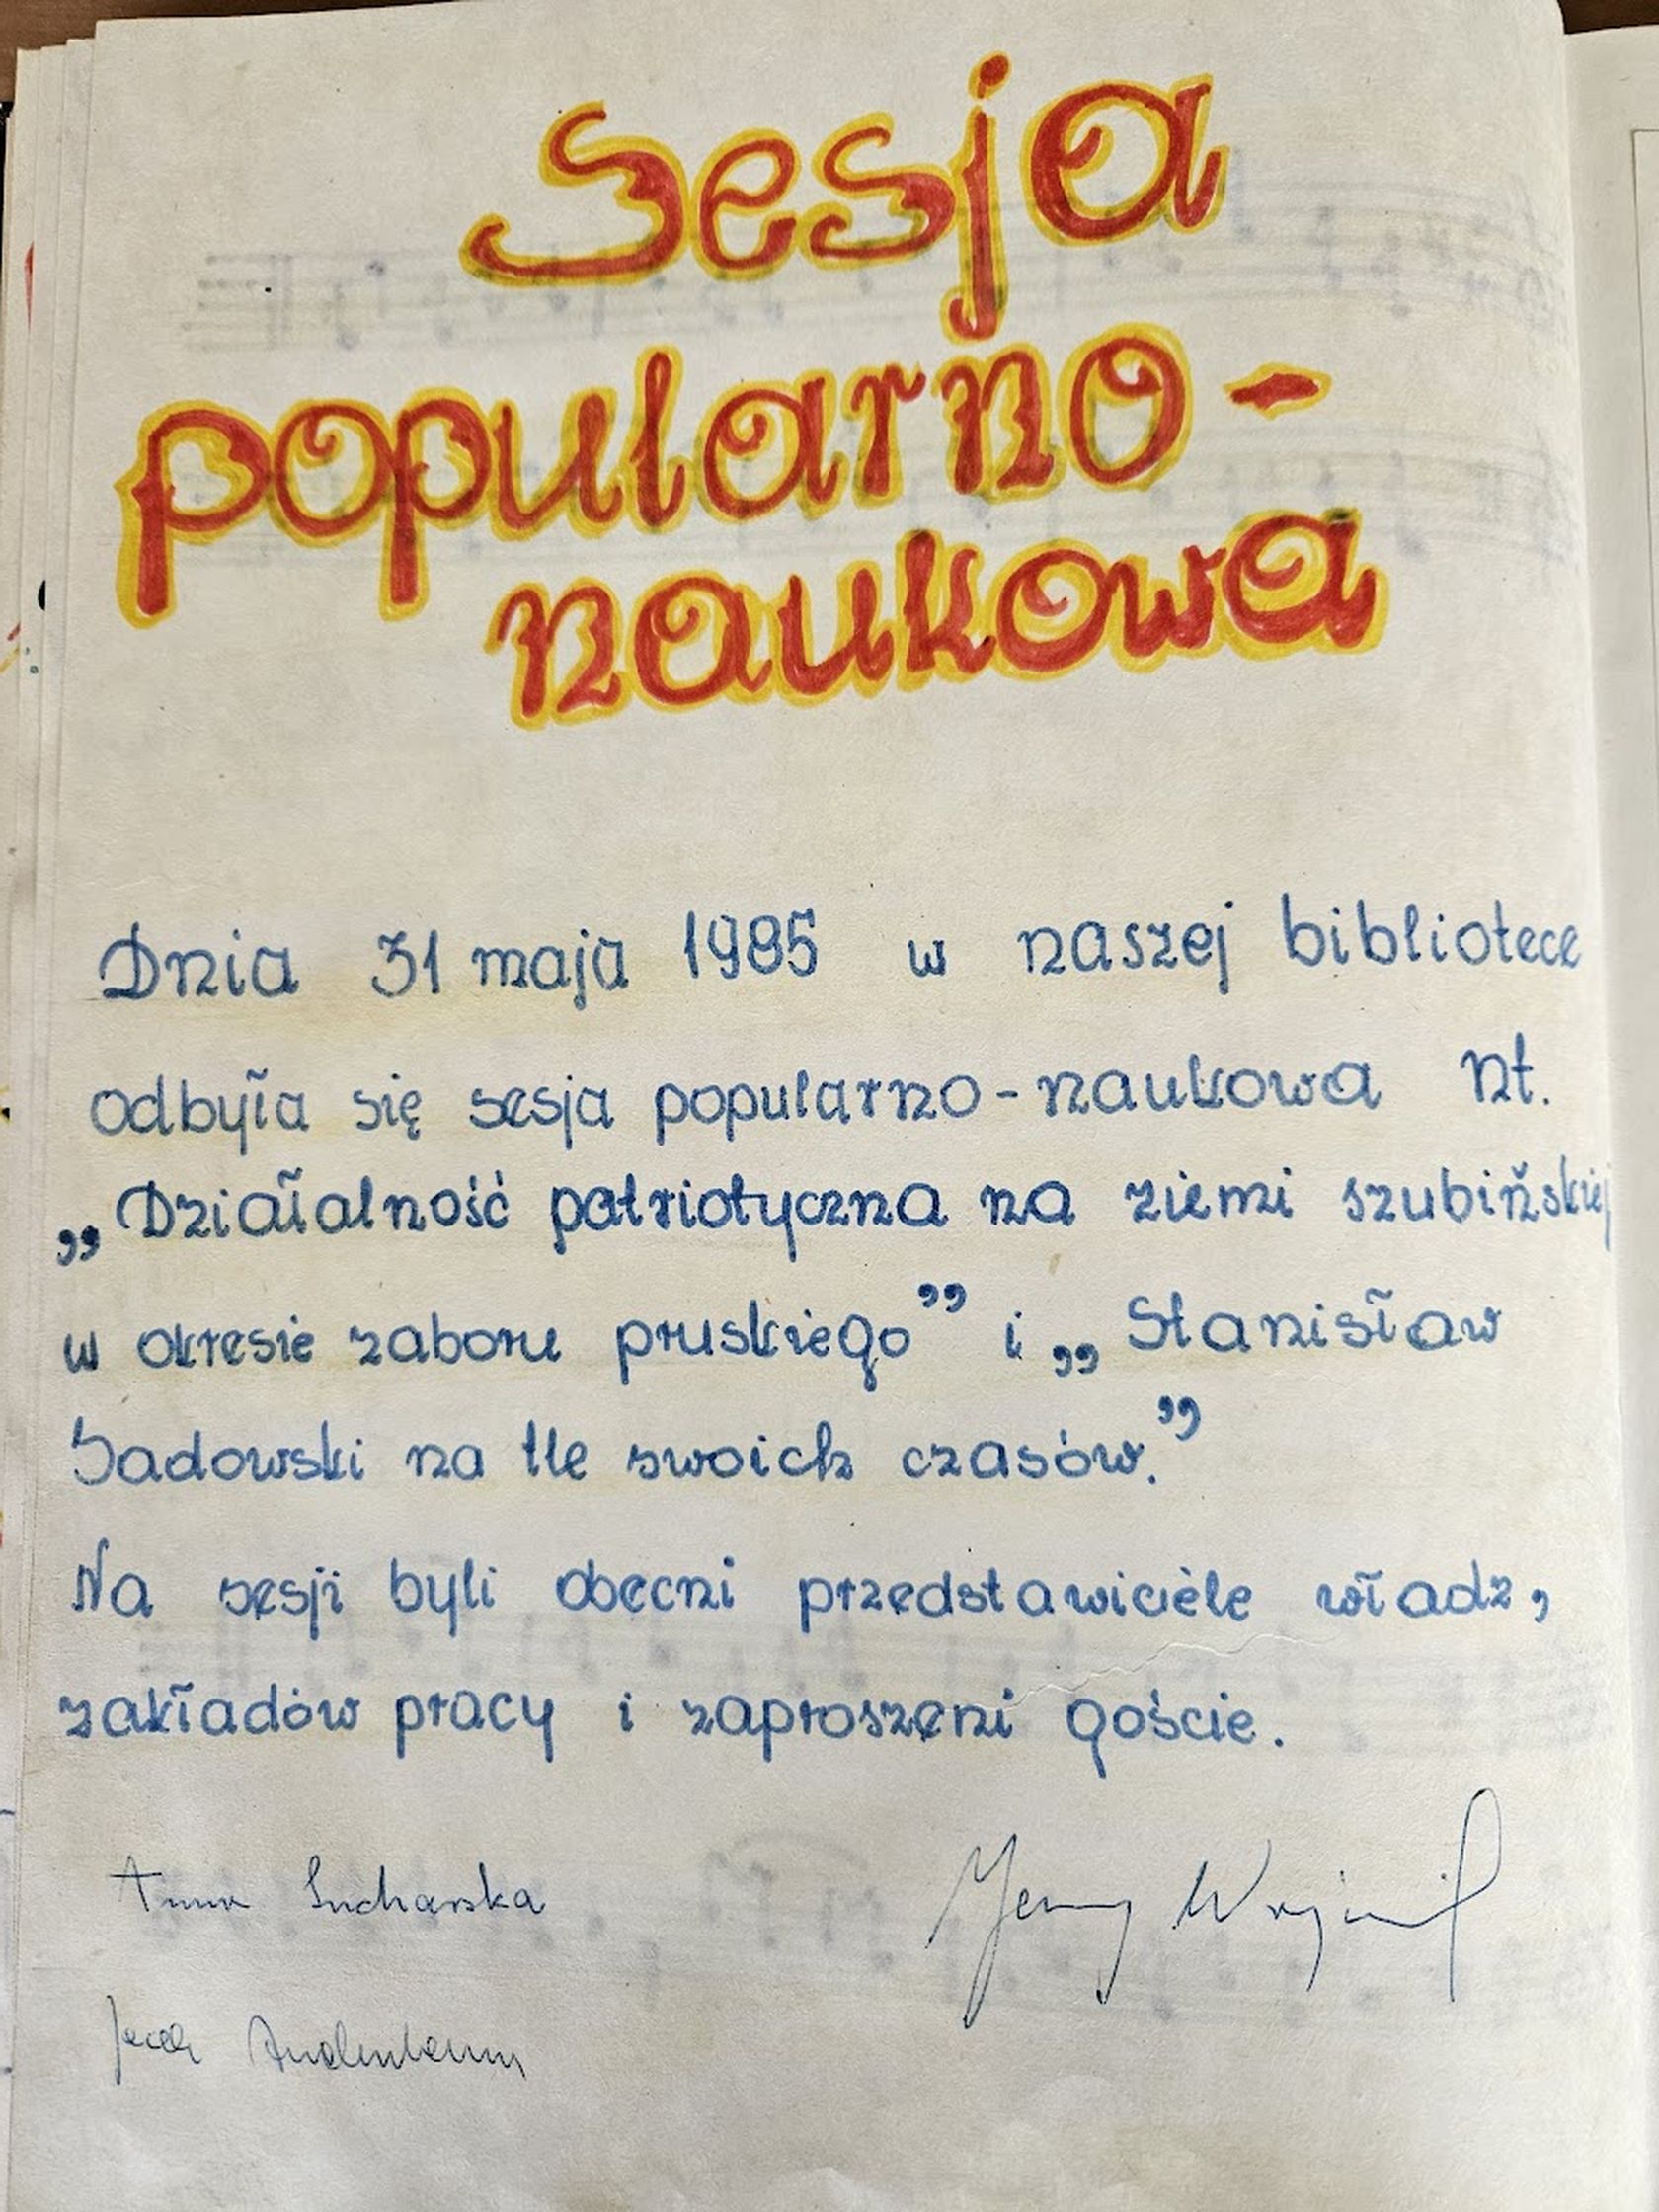 sesja
popularno-
naukowa
Dnia 31 maja 1985 w naszej bibliotece
odbyła się sesja popularno-naukowa nt.
„Działalność patriotyczna na ziemi szubińskiej
w okresie zaboru pruskiego” i „Stanisław
Sadowski na tle swoich czasów.”
Na sesji byli obecni przedstawiciele władz,
zakładów pracy i zaproszeni goście.
Anna Sucharska
Jerzy